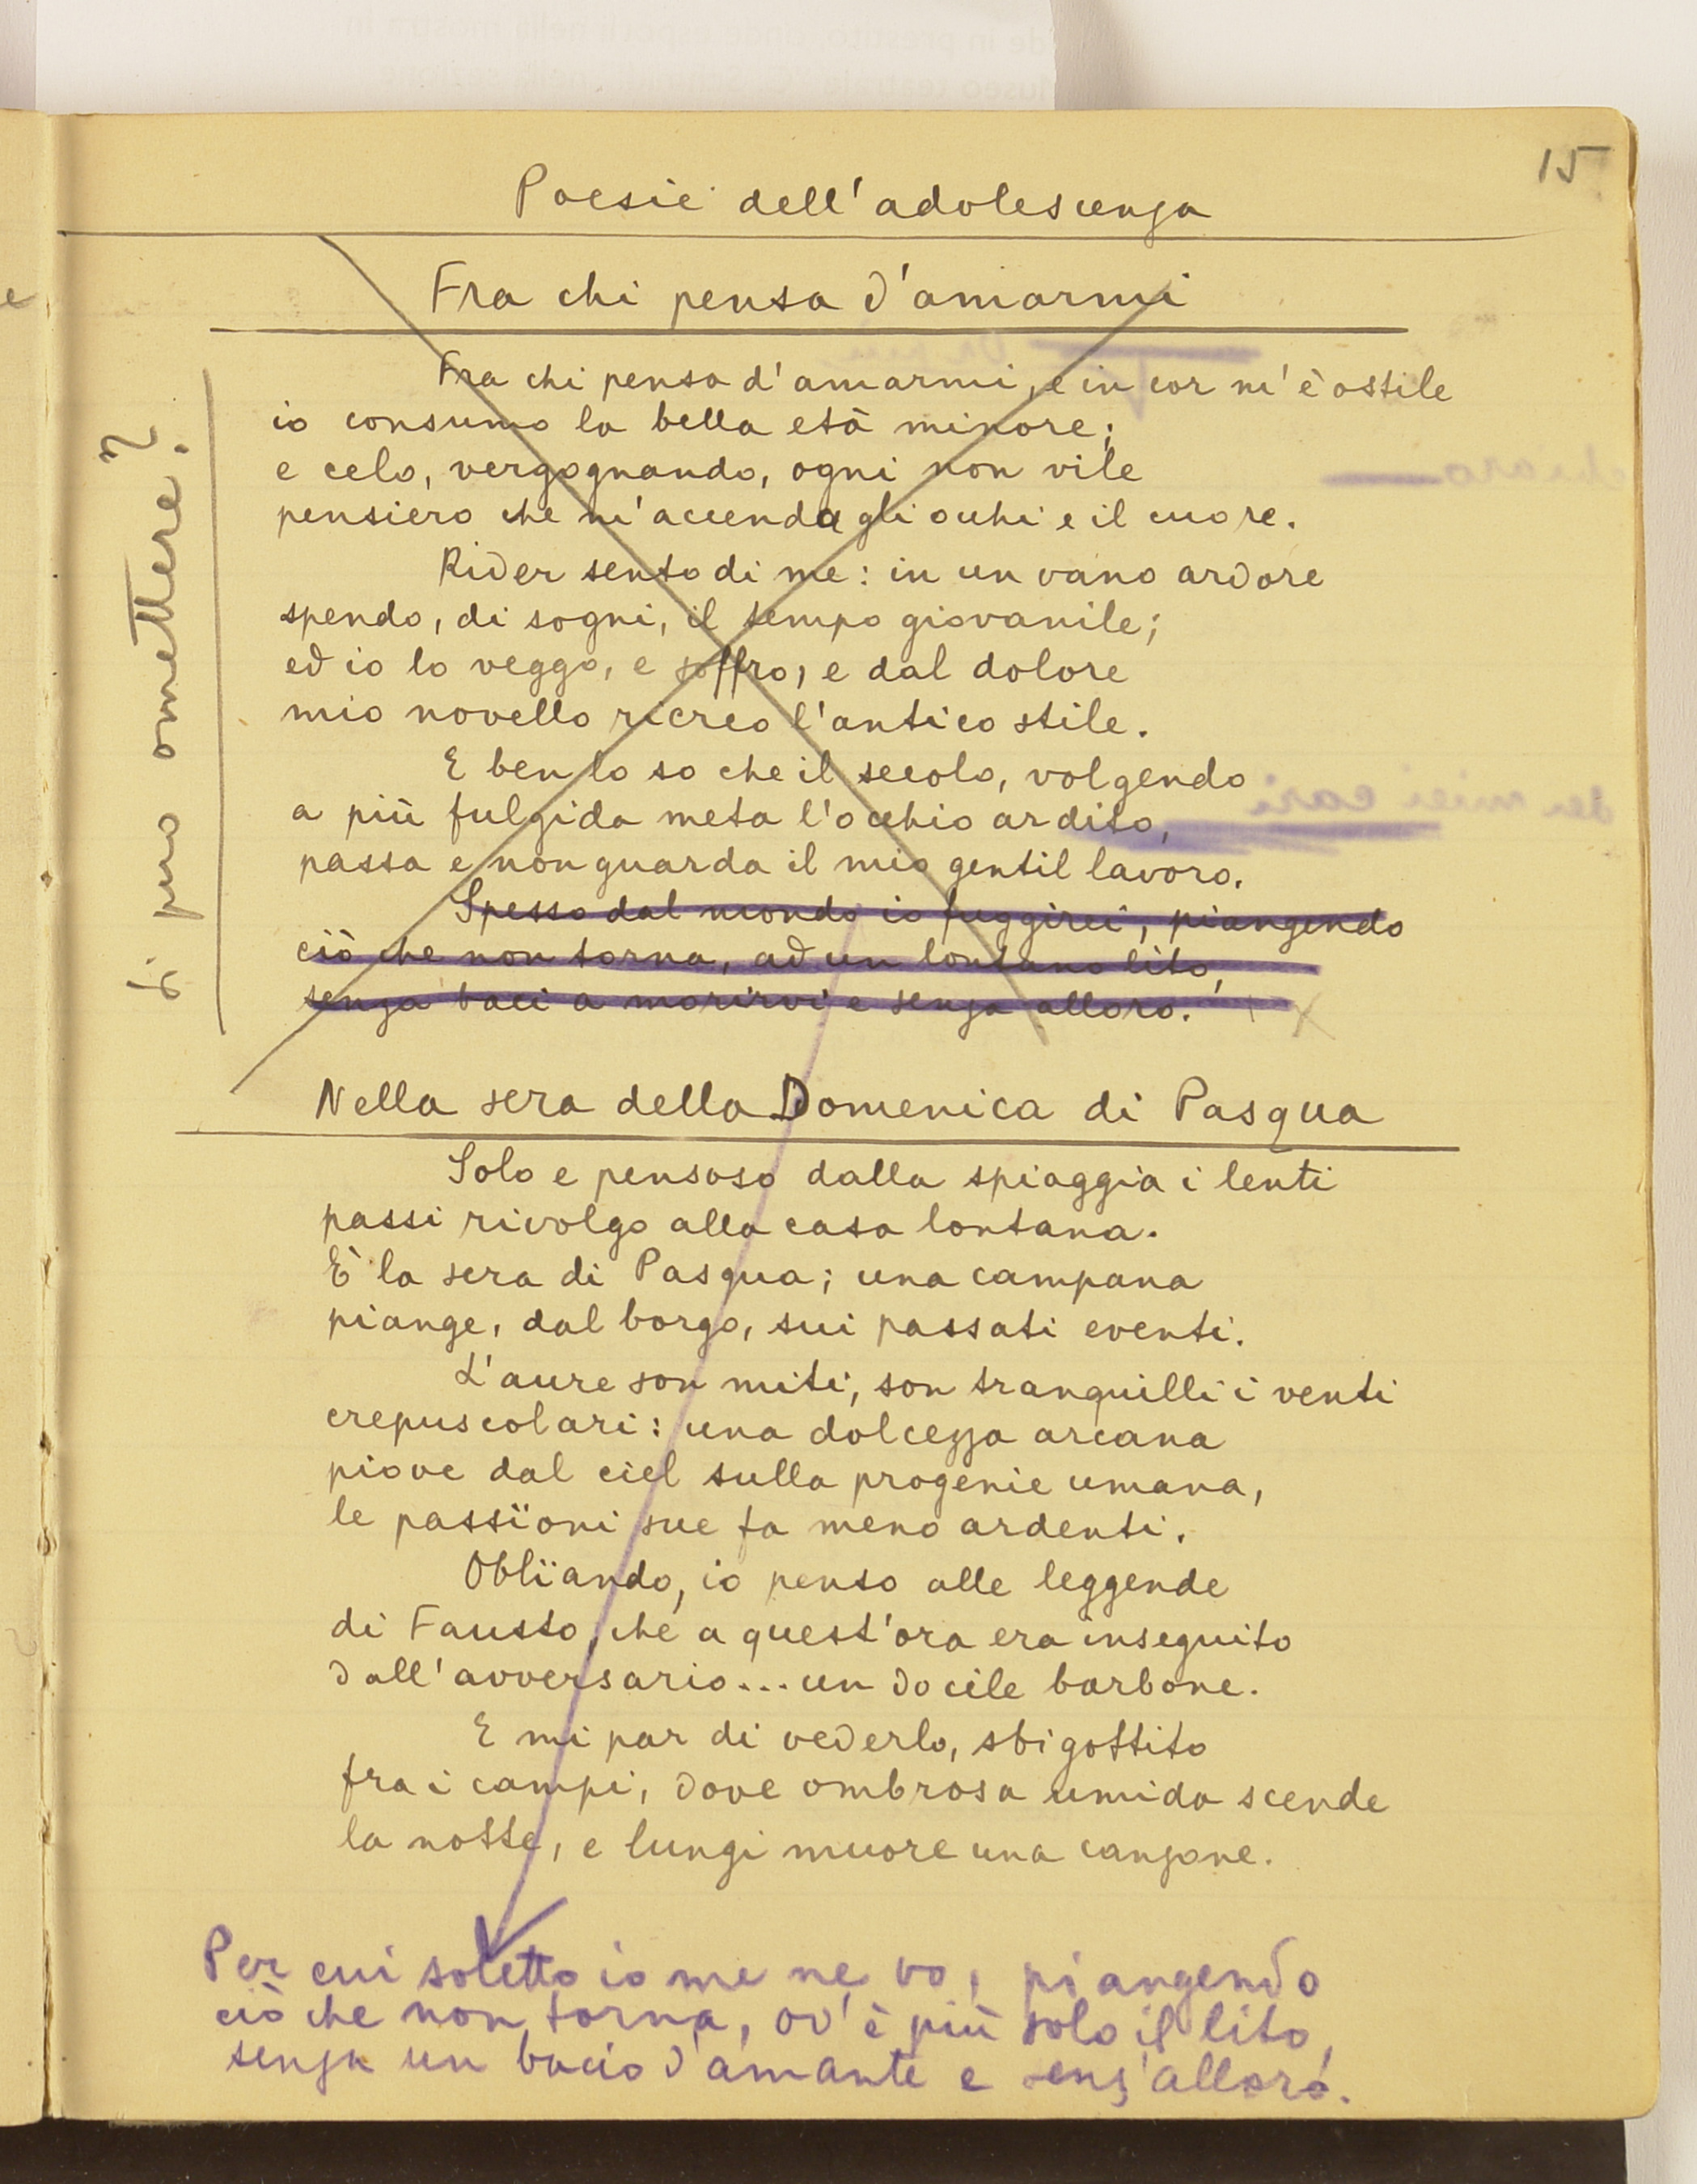 15
Poesie dell'adolescenza
Fra chi pensa d'amarmi
Fra chi pensa d'amarmi, e in cor m'è ostile
io consumo la bella età minore;
e celo, vergognando, ogni non vile
pensiero che m'accenda gli occhi e il cuore.
Rider sento di me: in un vano ardore
spendo, di sogni, il tempo giovanile;
ed io lo veggo, e soffro, e dal dolore
mio novello ricreo l'antico stile.
E ben lo so che il secolo, volgendo
a più fulgida meta l'occhio ardito,
passa e non guarda il mio gentil lavoro.
Spesso dal mondo io fuggirei, piangendo
ciò che non torna, ad un lontano lito,
senza baci a morirvi e senza alloro.
si può omettere?
Nella sera della Domenica di Pasqua
Solo e pensoso dalla spiaggia i lenti
passi rivolgo alla casa lontana.
È la sera di Pasqua; una campana
piange, dal borgo, sui passati eventi.
L'aure son miti, son tranquilli i venti
crepuscolari: una dolcezza arcana
piove dal ciel sulla progenie umana,
le passïoni sue fa meno ardenti.
Oblïando, io penso alle leggende
di Fausto, che a quest'ora era inseguito
dall'avversario... un docile barbone.
E mi par di vederlo, sbigottito
fra i campi, dove ombrosa umida scende
la notte, e lungi muore una canzone.
Per cui soletto io me ne vo, piangendo
ciò che non torna, ov'è più solo il lito,
senza un bacio d'amante e senz'alloro.